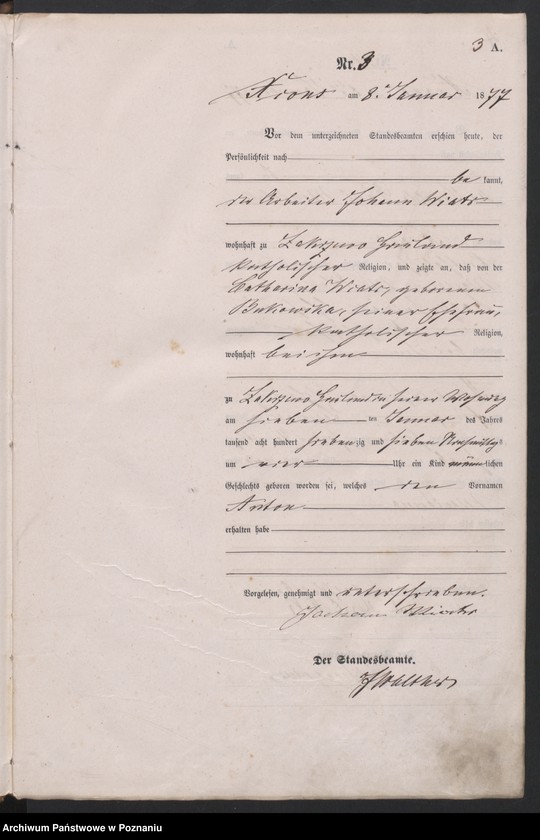 3 A.
Nr. 3
Xions am 8. Januar 1877
Vor dem unterzeichneten Standesbeamten erschien heute, der
Persönlichkeit nach
be kannt,
der Arbeiter Johann
wohnhaft zu Zakrzewo Hauland
katholischer Religion, und zeigte an, daß von der
Catharina geborenen
seiner Ehefrau,
katholischer Religion,
wohnhaft bei ihm
zu Zakrzewo Hauland in seiner Wohnung
am sieben ten Januar des Jahres
tausend acht hundert siebenzig und sieben Nachmittags
um vier Uhr ein Kind männlichen
Geschlechts geboren worden sei, welches den Vornamen
Anton
erhalten habe
Vorgelesen, genehmigt und unterschrieben.
Johann
Der Standesbeamte.
Archiwum Państwowe w Poznaniu